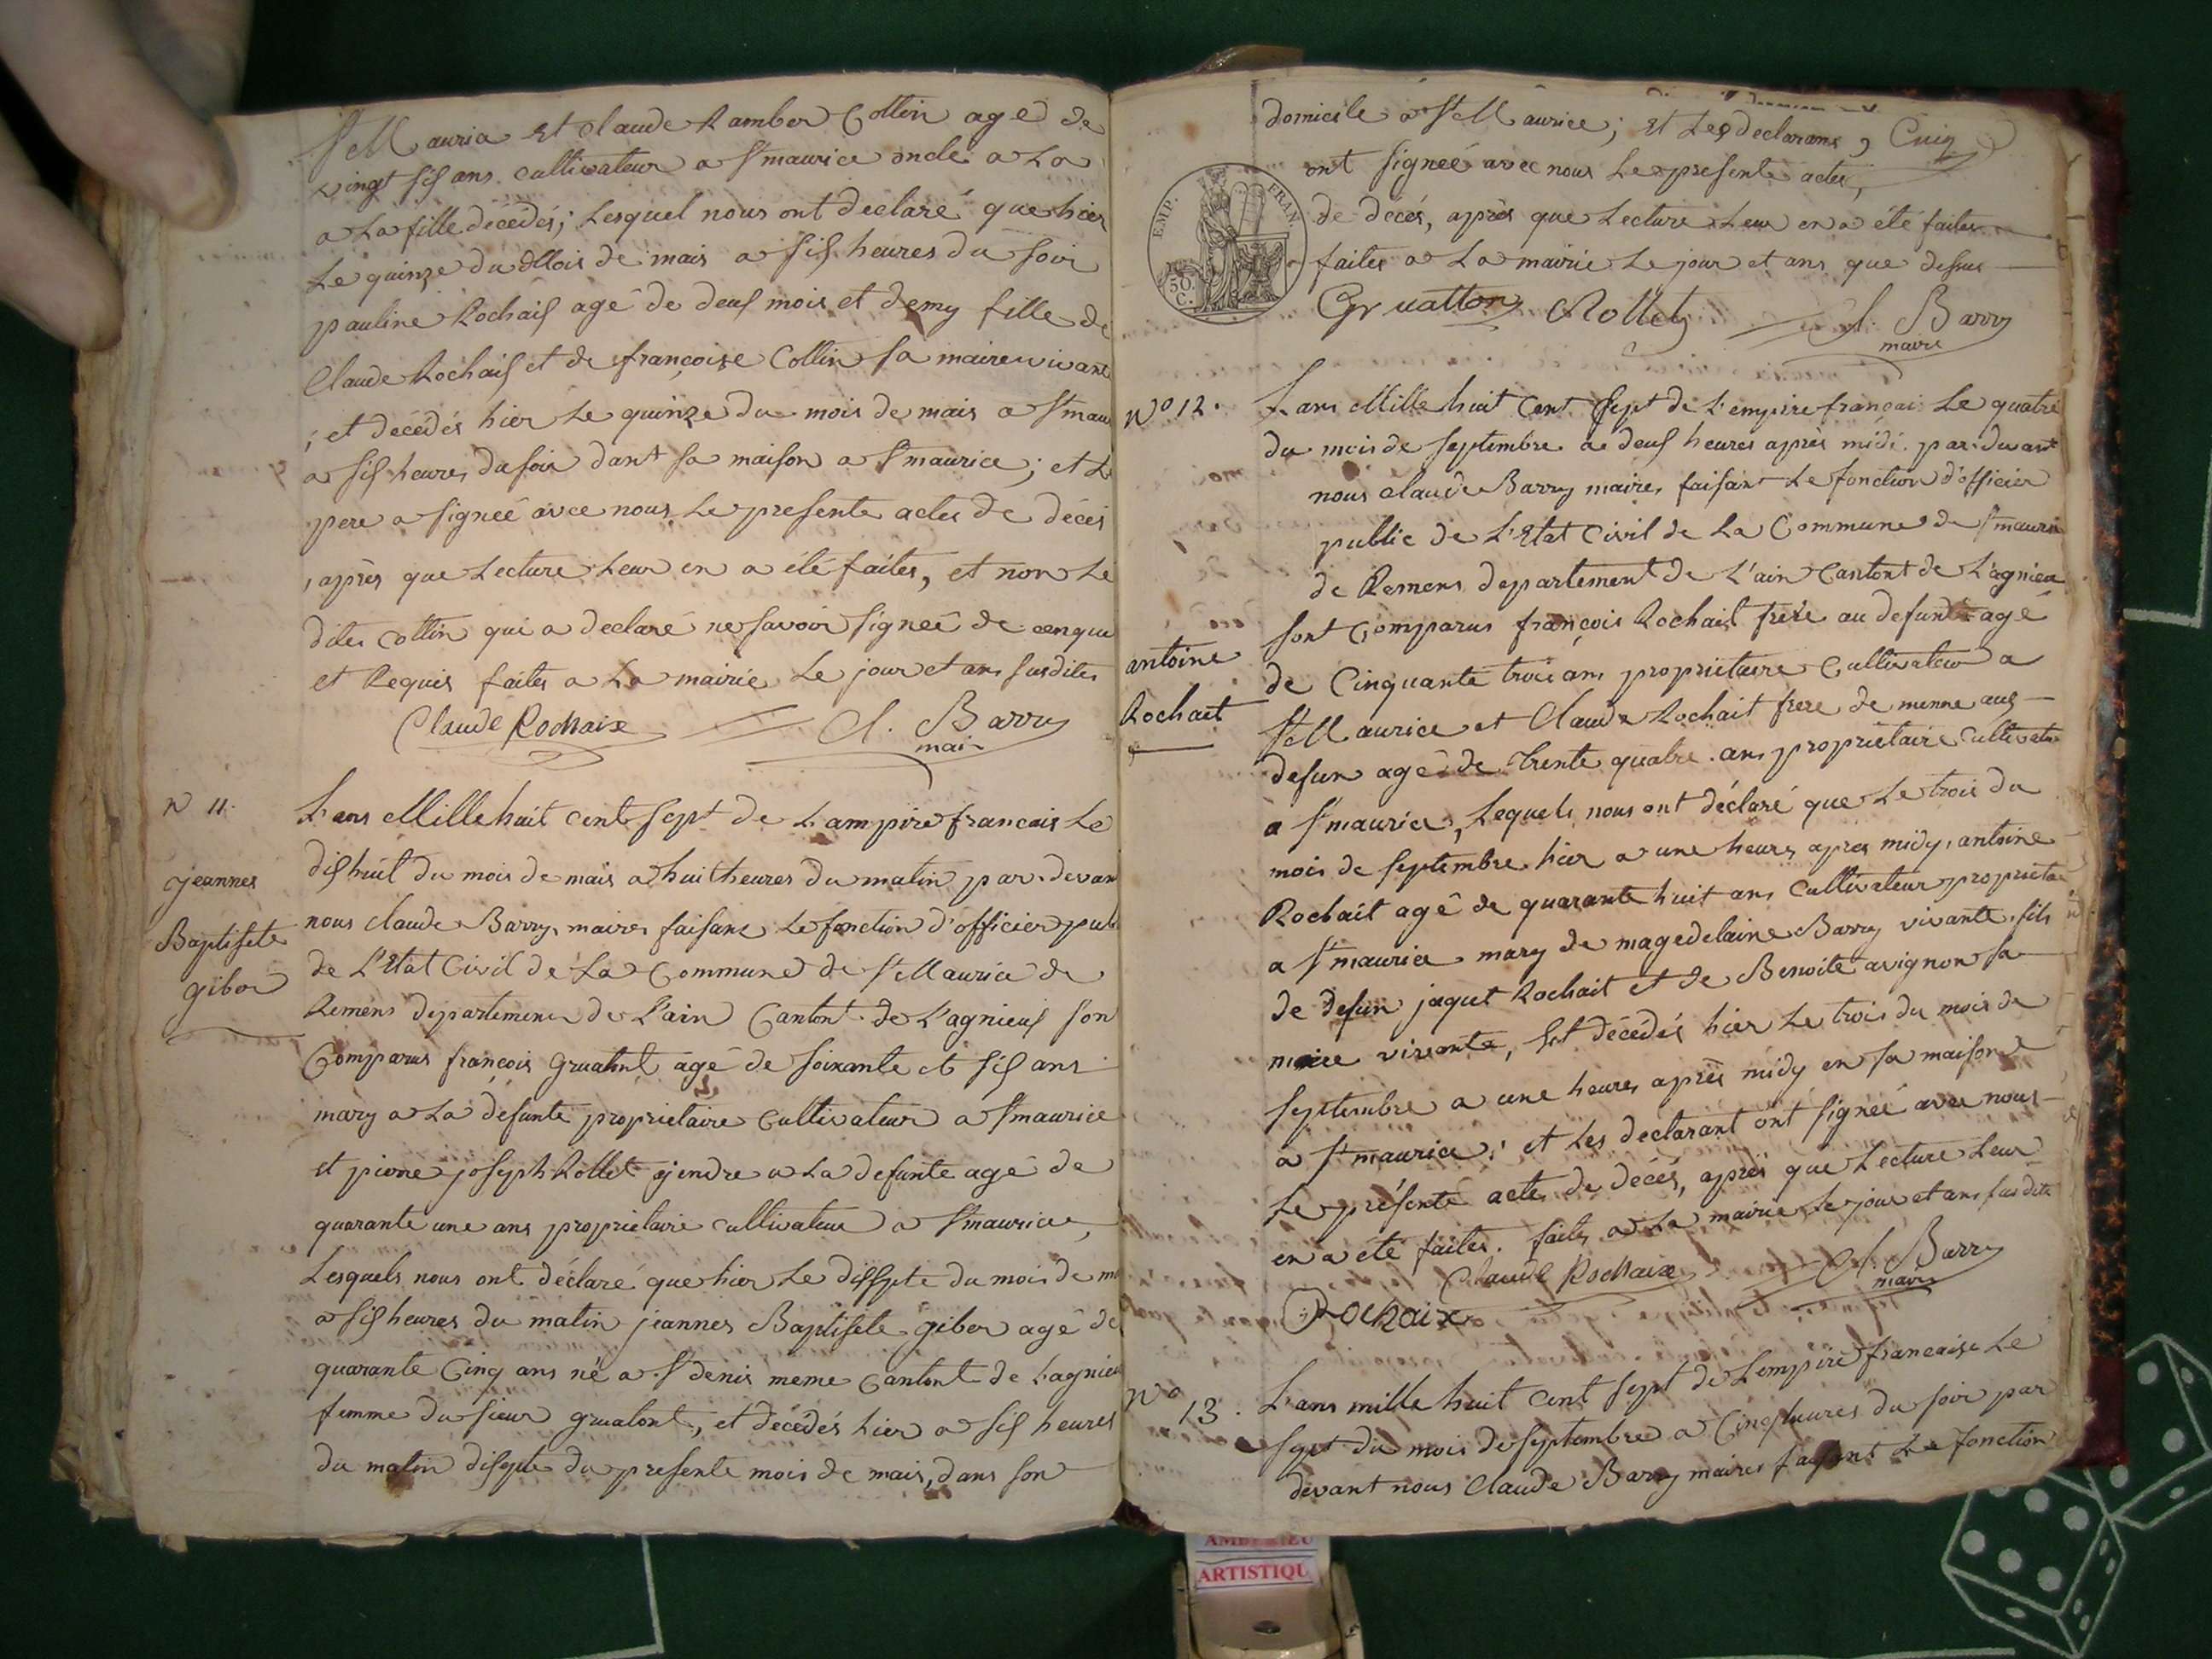 St Mauria et Claude Rambor Collin agé de
vingt six ans cultivateur a St maurice oncle a La
a La fille décédés; Lesquel nous ont declaré que hier
Le quinze du Mois de mais a six heures du soir
pauline Rochaix agé de deux mois et demy fille de
Claude Rochaix et de françoise Collin sa maire vivante
; et décédés hier Le quinze du mois de mais a St mau
a six heures du soir dant sa maison a St maurice; et Le
pere a signeé avec nous Le presente actes de décés
, après que Lecture Leur en a été faites, et non Le
dites Collin qui a declaré ne savoir signeé de cenque
et Requis faites a La mairie Le jour et ans susdites
Claude Rochaix Cl. Barry
maire
N 11.
jeannes
Baptisete
gibor
L'ans Mille huit cent sept de L'ampire francais Le
dix huit du mois de mais a huit heures du matin par devan
nous claude Barry, maires faisans Le fonction d'officier publ
de L'Etat Civil de La Commune de St Maurice de
Remens departement de L'ain Cantont de L'agnieux son
Comparus françois Gruatont agé de soixante et six ans
mary a La defunte proprietaire Cultivateur a St maurice
et pierre joseph Rollet gendre a La defunte agé de
quarante une ans proprietaire cultivateur a St maurice,
Lesquels nous ont déclaré que hier Le dissepte du mois de m
a six heures du matin jeannes Baptisete gibor agé de
quarante Cinq ans né a St denis meme Cantont de Lagnieu
femme du sieur gruatont, et décédés hier a six heures
du matin disepte du presente mois de mais, dans son
domicile a St Maurice; et Les declarans,
ont signeé avec nous Le presente actes,
de décés, après que Lecture Leur en a été faites
faites a La mairie Le jour et ans que dessus
EMP. FRAN.
50.
C.
Gruatton Rollet Cl. Barry
maire
N° 12.
antoine
Rochait
L'ans Mille huit Cent Sept de L'empire françai Le quatre
du mois de septembre a deux heures après midi par devant
nous claude Barry maires faisant Le fonction d'officier
public de L'Etat Civil de La Commune de St mauri
de Remens departement de L'ain Cantont de L'agnieu
sont Comparus françois Rochait frere au defunt agé
de Cinquante trois ans proprietaire Cultivateur a
St Maurice et Claude Rochait frere de menne aux
defun agé de trente quatre ans proprietaire Cultivateu
a St maurice, Lequels nous ont déclaré que Le trois du
mois de septembre hier a une heures apres midy, antoine
Rochait agé de quarante huit ans Cultivateur proprieta
a St maurice mary de magedelaine Barry vivante, fils
de defun jaquet Rochait et de Benoite avignon sa
maire vivante, Et décédés hier Le trois du mois de
septembre a une heures après midy en sa maison
a St maurice; et Les declarant ont signeé avec nous
Le présente actes de décés, après que Lecture Leur
en a été faites. faites a La mairie Le jour et ans susdite
Claude Rochaix Cl. Barry
maire
Rochaix
N° 13.
L'ans mille huit Cent sept de Lempire francaise Le
sept du mois de septembre a Cinq heures du soir par
devant nous Claude Barry maires faisant Le fonction
AMBERIEU
ARTISTIQU